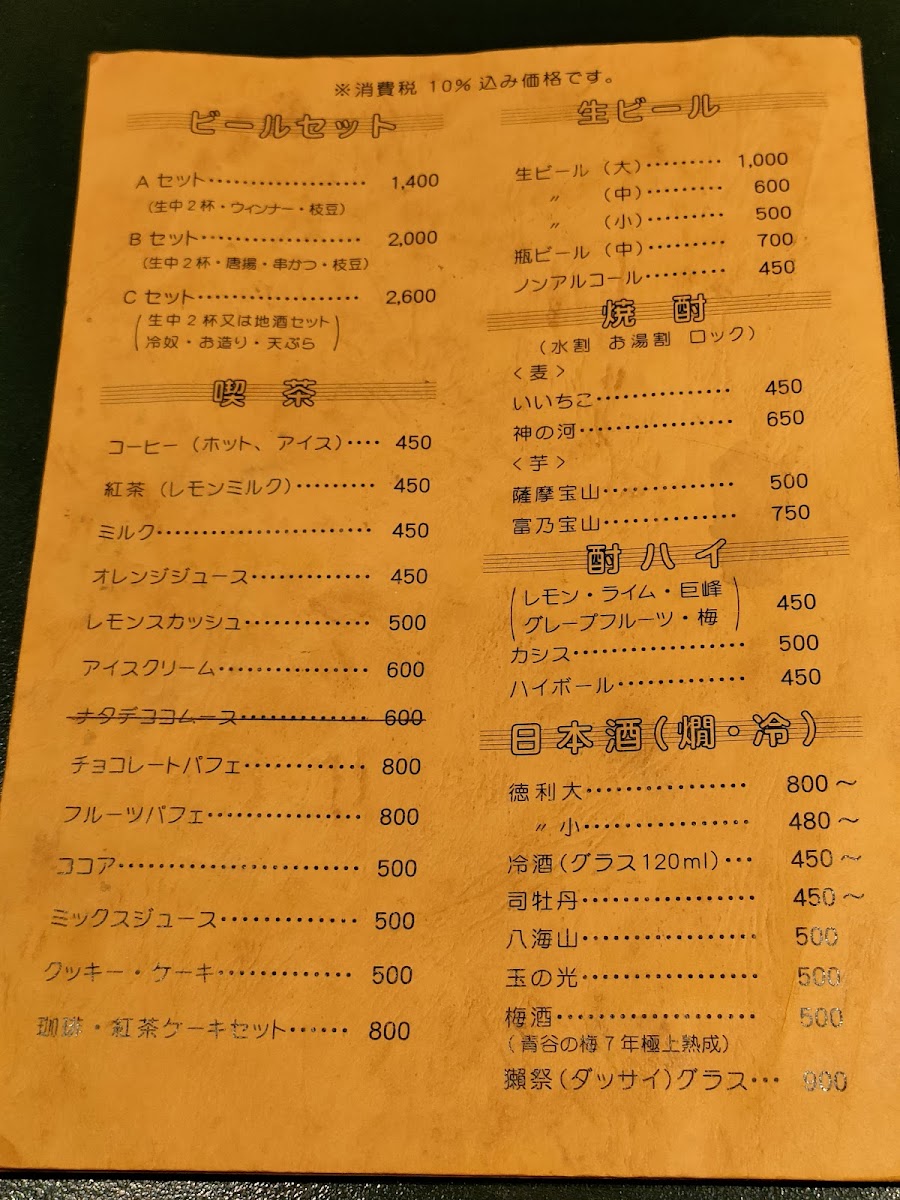 ※消費税 10%込み価格です。
ビールセット
Aセット・・・・・・・・・・・・・・・・・・ 1,400
(生中2杯・ウィンナー・枝豆)
Bセット・・・・・・・・・・・・・・・・・・ 2,000
(生中2杯・唐揚・串かつ・枝豆)
Cセット・・・・・・・・・・・・・・・・・・ 2,600
(生中2杯又は地酒セット
冷奴・お造り・天ぷら)
喫茶
コーヒー(ホット、アイス)・・・・ 450
紅茶(レモンミルク)・・・・・・・・・ 450
ミルク・・・・・・・・・・・・・・・・・・・・・ 450
オレンジジュース・・・・・・・・・・・・ 450
レモンスカッシュ・・・・・・・・・・・・ 500
アイスクリーム・・・・・・・・・・・・・・ 600
ナタデココムース・・・・・・・・・・・・ 600
チョコレートパフェ・・・・・・・・・・・ 800
フルーツパフェ・・・・・・・・・・・・・・ 800
ココア・・・・・・・・・・・・・・・・・・・・・ 500
ミックスジュース・・・・・・・・・・・・ 500
クッキー・ケーキ・・・・・・・・・・・・ 500
珈琲・紅茶ケーキセット・・・・・・ 800
生ビール
生ビール(大)・・・・・・・・・ 1,000
〃 (中)・・・・・・・・・ 600
〃 (小)・・・・・・・・・ 500
瓶ビール(中)・・・・・・・・・ 700
ノンアルコール・・・・・・・・・ 450
焼酎
(水割 お湯割 ロック)
<麦>
いいちこ・・・・・・・・・・・・・・・ 450
神の河・・・・・・・・・・・・・・・・・ 650
<芋>
薩摩宝山・・・・・・・・・・・・・・・ 500
富乃宝山・・・・・・・・・・・・・・・ 750
酎ハイ
(レモン・ライム・巨峰
グレープフルーツ・梅) 450
カシス・・・・・・・・・・・・・・・・・・ 500
ハイボール・・・・・・・・・・・・・ 450
日本酒(燗・冷)
徳利大・・・・・・・・・・・・・・・・ 800〜
〃小・・・・・・・・・・・・・・・・・ 480〜
冷酒(グラス120ml)・・・ 450〜
司牡丹・・・・・・・・・・・・・・・・・ 450〜
八海山・・・・・・・・・・・・・・・・・ 500
玉の光・・・・・・・・・・・・・・・・・ 500
梅酒・・・・・・・・・・・・・・・・・・・ 500
(青谷の梅7年極上熟成)
獺祭(ダッサイ)グラス・・・